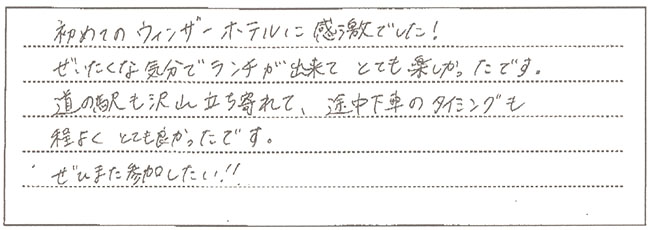 初めてのウィンザーホテルに感激でした!
ぜいたくな気分でランチが出来てとても楽しかったです。
道の駅も沢山立ち寄れて、途中下車のタイミングも
程よくとても良かったです。
ぜひまた参加したい!!